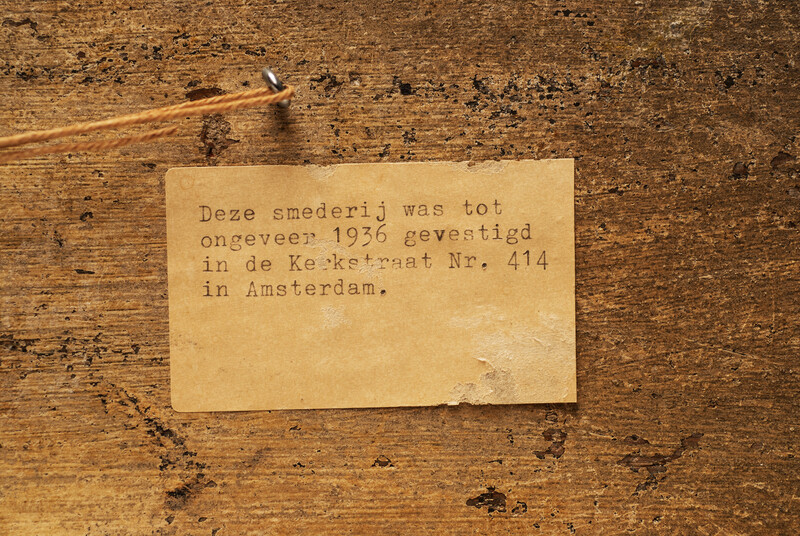 Deze smederij was tot
ongeveer 1936 gevestigd
in de Kerkstraat Nr. 414
in Amsterdam.